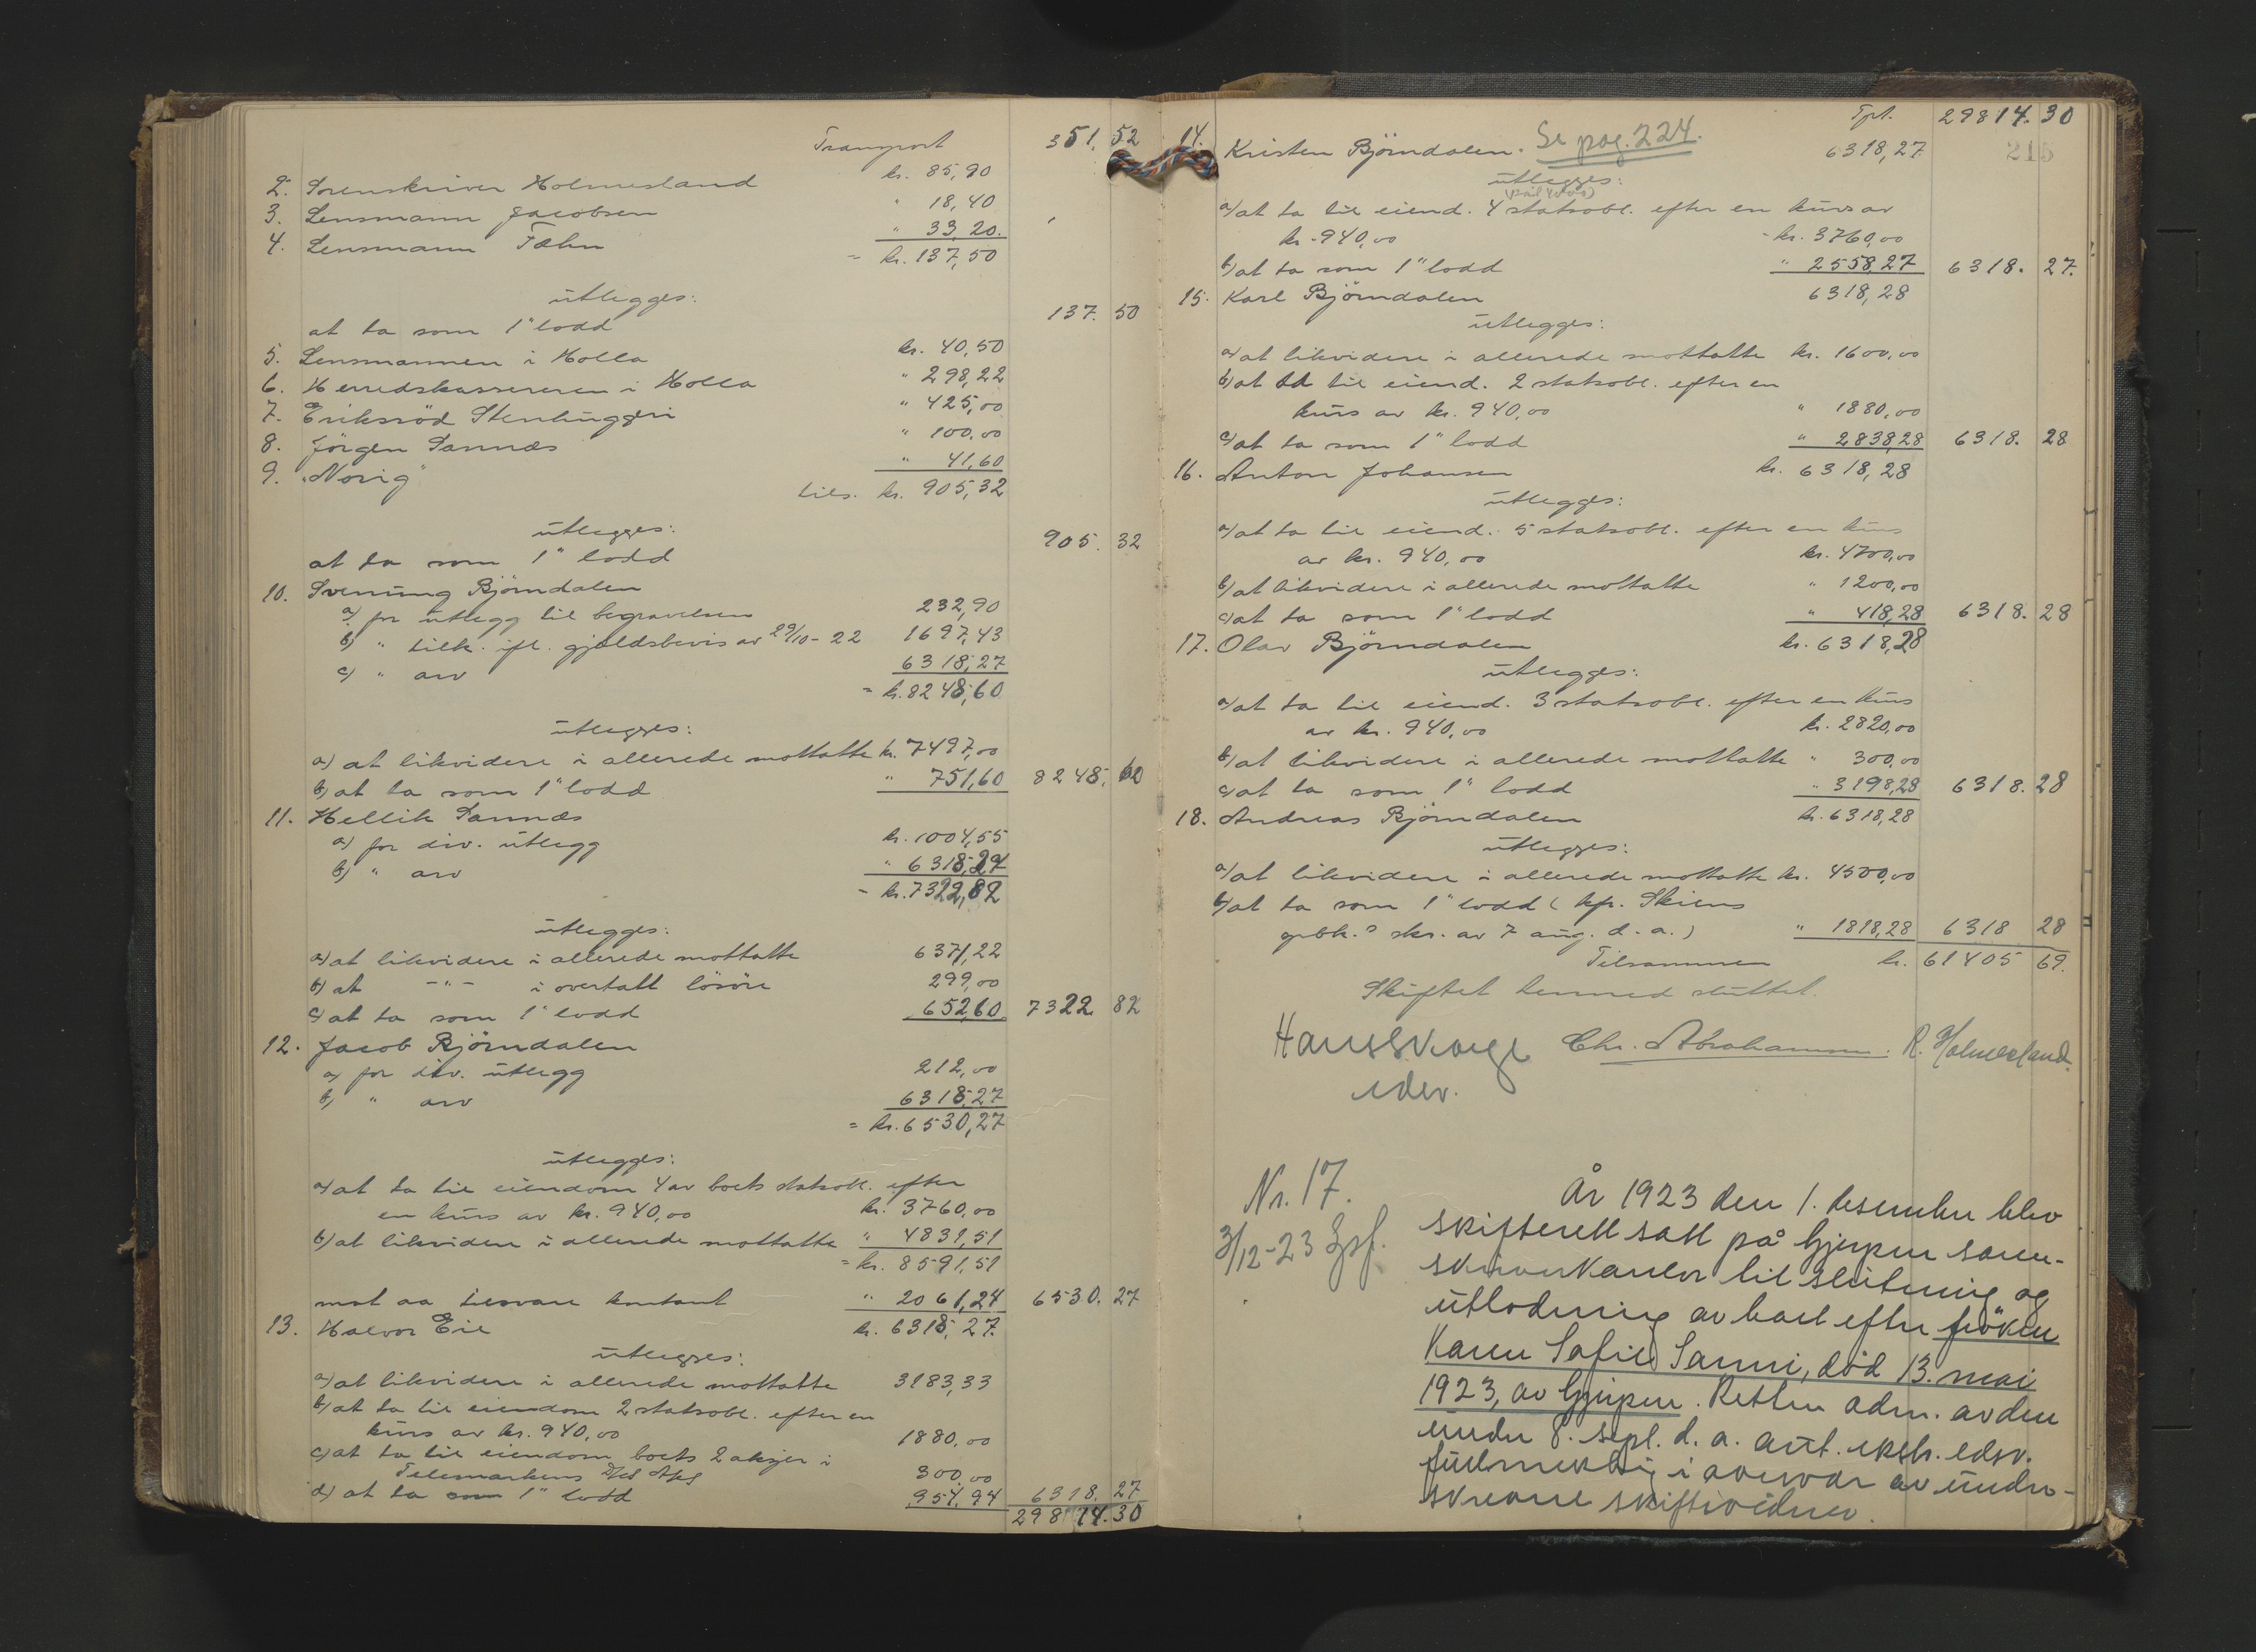 Transport 351. 52
2. Sorenskriver Holmesland kr. 85,90
3. Lensmann Jacobsen " 18,40
4. Lensmann Fæhn " 33,20.
= kr. 137,50
utlegges:
at ta som 1" lodd 137. 50
5. Lensmannen i Holla kr. 40,50
6. Herredskassereren i Holla " 298,22
7. Eriksrød Stenhuggeri " 425,00
8. Jörgen Sannæs " 100,00
9. "Norig" " 41,60
tils. kr. 905,32
utlegges:
at ta som 1" lodd 905. 32
10. Svenung Björndalen
a) for utlegg til begravelsen 232,90
b) " tilk. ifl. gjældsbevis av 29/10-22 1697,43
c) " arv 6318,27
= kr. 8248,60
utlegges:
a) at likvidere i allerede mottatte kr. 7497,00
b) at ta som 1" lodd " 751,60 8248. 60
11. Hellik Sannæs
a) for div. utlegg kr. 1004,55
b) " arv " 6318,27
= kr. 7322,82
utlegges:
a) at likvidere i allerede mottatte 6371,22
b) at -"- i overtatt lösöre 299,00
c) at ta som 1" lodd 652,60 7322. 82
12. Jacob Björndalen
a) for div. utlegg 212,00
b) " arv 6318,27
= kr. 6530,27
utlegges:
a) at ta til eiendom 4 av boets statsobl. efter
en kurs av kr. 940,00 kr. 3760,00
b) at likvidere i allerede mottatte " 4831,51
= kr. 8591,51
mot aa tilsvare kontant " 2061,24 6530. 27
13. Halvor Eie kr. 6318,27.
utlegges:
a) at likvidere i allerede mottatte 3183,33
b) at ta til eiendom 2 statsobl. efter en
kurs av kr. 940,00 1880,00
c) at ta til eiendom boets 2 aksjer i
Telemarkens 300,00
d) at ta som 1" lodd 954,94 6318. 27
29814. 30
Tpt. 29814. 30
215
14. Kristen Björndalen. Se pag. 224. 6318,27
utlegges:
a) at ta til eiend. 4 statsobl. efter en kurs av
kr. 940,00 - kr. 3760,00
b) at ta som 1" lodd " 2558,27 6318. 27.
15. Karl Björndalen 6318,28
utlegges:
a) at likvidere i allerede mottatte kr. 1600,00
b) at ta til eiend. 2 statsobl. efter en
kurs av kr. 940,00 " 1880,00
c) at ta som 1" lodd " 2838,28 6318. 28
16. Anton Johansen kr. 6318,28
utlegges:
a) at ta til eiend. 5 statsobl. efter en kurs
av kr. 940,00 kr. 4700,00
b) at likvidere i allerede mottatte " 1200,00
c) at ta som 1" lodd " 418,28 6318. 28
17. Olav Björndalen kr. 6318,28
utlegges:
a) at ta til eiend. 3 statsobl. efter en kurs
av kr. 940,00 kr. 2820,00
b) at likvidere i allerede mottatte " 300,00
c) at ta som 1" lodd " 3198,28 6318. 28
18. Andreas Björndalen kr. 6318,28
utlegges:
a) at likvidere i allerede mottatte kr. 4500,00
b) at ta som 1" lodd ( kfr. Skiens
skr. av 7 aug. d. a.) " 1818,28 6318 28
Tilsammen kr. 61405 69.
Skiftet dermed sluttet.
Chr. Abrahamsen. R. Holmesland.
edsv.
Nr. 17.
3/12-23
År 1923 den 1. desember blev
skifterett satt på Gjerpen soren-
skriverkontor til slutning og
utlodning av boet efter fröken
Karen Sofie Sanni, död 13. mai
1923, av Gjerpen. Retten adm. av den
under 8. sept. d. a. aut. ekstr. edsv.
fullmektig i overvær av under-
skrevne skiftevidner.